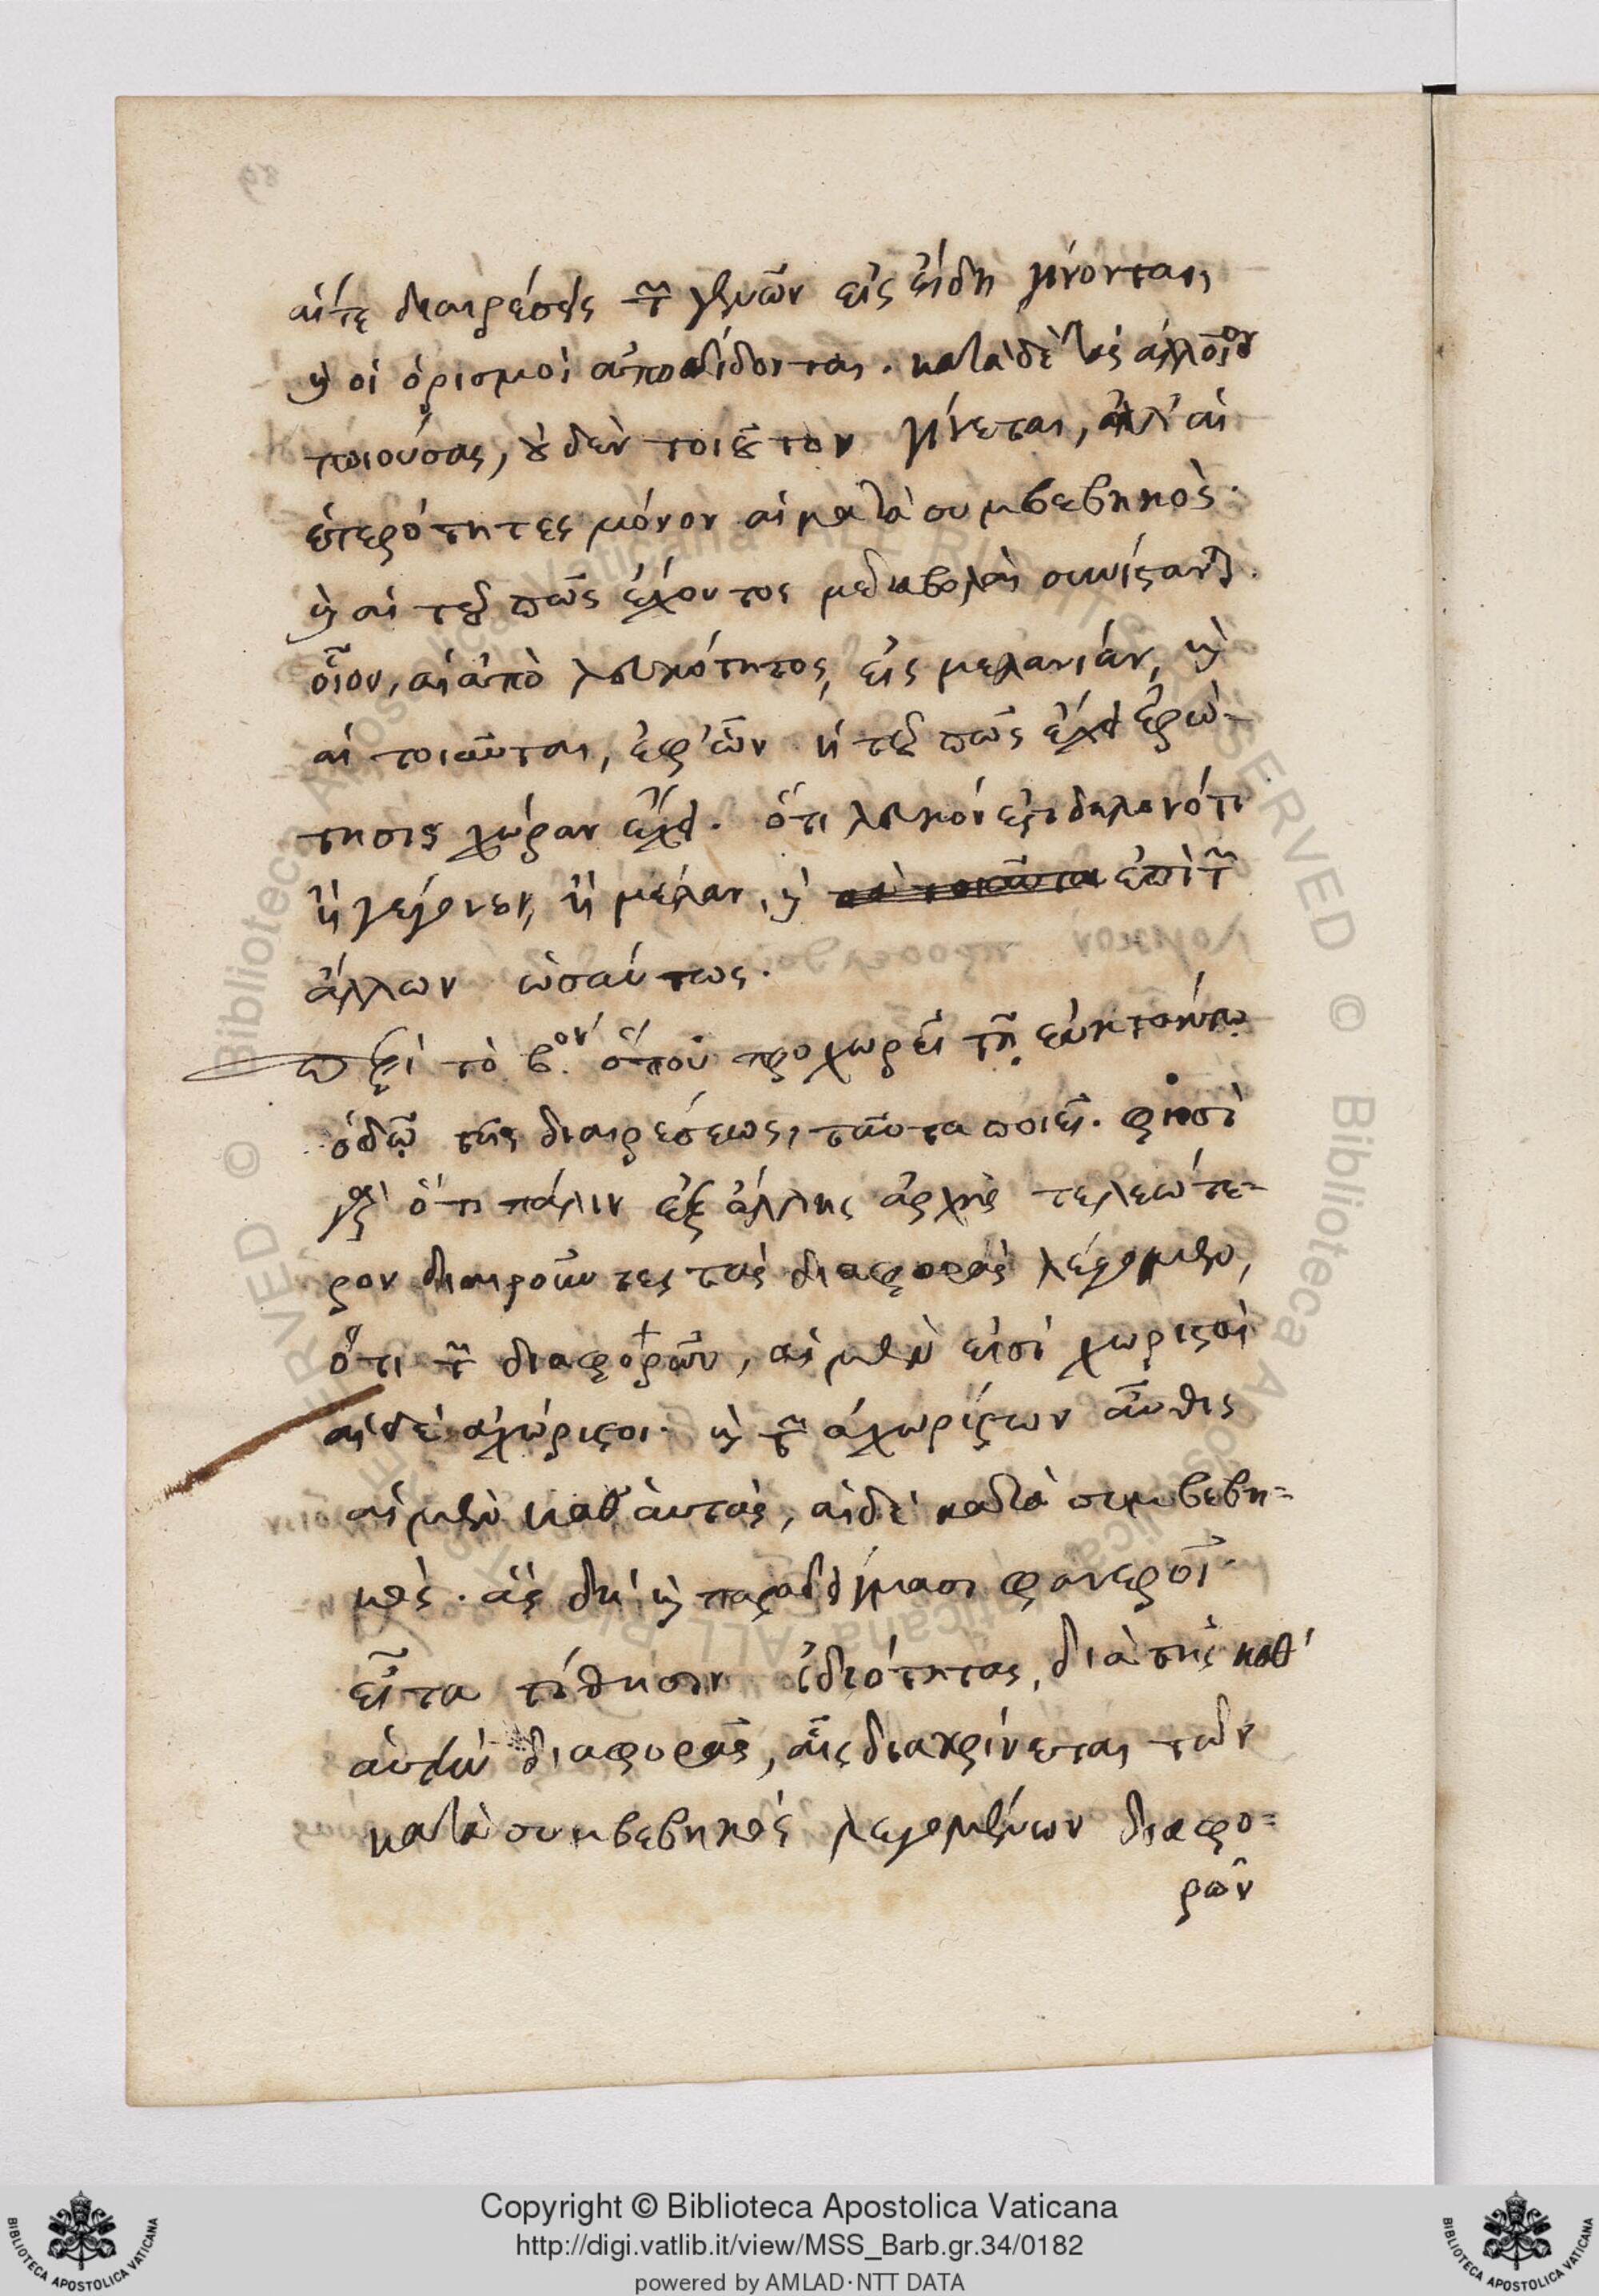 αἵτε διαιρέσεις τῶν γενῶν εἰς εἴδη γίνονται,
καὶ οἱ ὁρισμοὶ ἀποδίδονται. κατὰ δὲ τὰς ἀλλοῖον
ποιούσας, οὐδὲν τοιοῦτον γίνεται, ἀλλ' αἱ
ἑτερότητες μόνον αἱ κατὰ συμβεβηκός·
καὶ αἱ τοῦ πῶς ἔχοντος μεταβολαὶ συνίστανται.
οἷον, αἱ ἀπὸ λευκότητος, εἰς μελανίαν, καὶ
αἱ τοιαῦται, ἐφ' ὧν ἡ τοῦ πῶς ἔχει ἐρώ-
τησις χώραν ἔχει. ὅτι λευκόν ἐστι δηλονότι
ἢ γέγονεν, ἢ μέλαν, καὶ ἐπὶ τῶν
ἄλλων ὡσαύτως.
Περὶ τὸ β.ον ὅπου προχωρεῖ τῇ
ὁδῷ τῆς διαιρέσεως, ταῦτα ποιεῖ. φησὶ
γὰρ ὅτι πάλιν ἐξ ἄλλης ἀρχῆς τελεώτε-
ρον διαιροῦντες τὰς διαφορὰς λέγομεν,
ὅτι τῶν διαφορῶν, αἱ μὲν εἰσὶ χωρισταὶ
αἱ δὲ ἀχώριστοι· καὶ τῶν ἀχωρίστων αὖθις
αἱ μὲν καθ' αὑτάς, αἱ δὲ κατὰ συμβεβη=
κός. ἃς δὴ καὶ παραδείγμασι φανεροῖ·
εἶτα τίθησιν ἰδιότητας, διὰ τῆς καθ'
αὑτὴν διαφορᾶς, αἷς διακρίνεται τῶν
κατὰ συμβεβηκὸς λεγομένων διαφο=
ρῶν
Copyright © Biblioteca Apostolica Vaticana
http://digi.vatlib.it/view/MSS_Barb.gr.34/0182
powered by AMLAD·NTT DATA